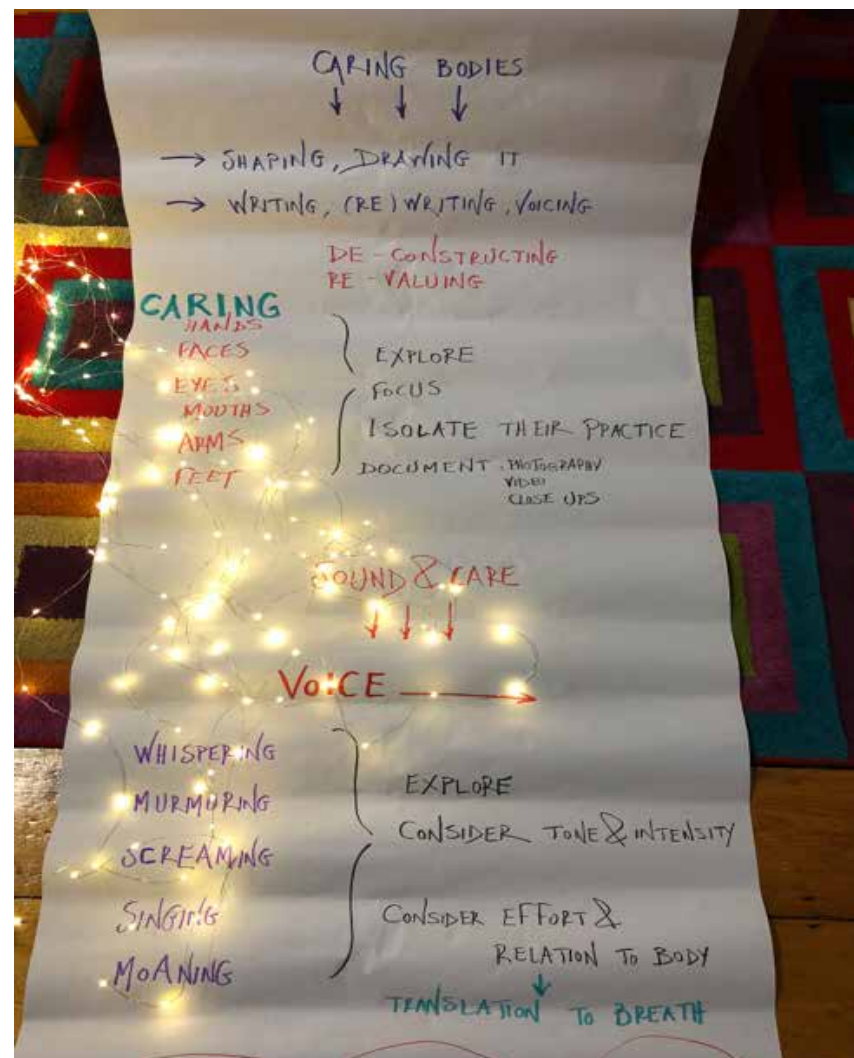 CARING BODIES
↓ ↓ ↓
→ SHAPING, DRAWING IT
→ WRITING, (RE) WRITING, VOICING
DE-CONSTRUCTING
RE-VALUING
CARING
HANDS
FACES
EYES
MOUTHS
ARMS
FEET
EXPLORE
FOCUS
ISOLATE THEIR PRACTICE
DOCUMENT . PHOTOGRAPHY
VIDEO
CLOSE UPS
SOUND & CARE
↓ ↓ ↓
VOICE →
WHISPERING
MURMURING
SCREAMING
SINGING
MOANING
EXPLORE
CONSIDER TONE & INTENSITY
CONSIDER EFFORT &
RELATION TO BODY
↓
TRANSLATION TO BREATH